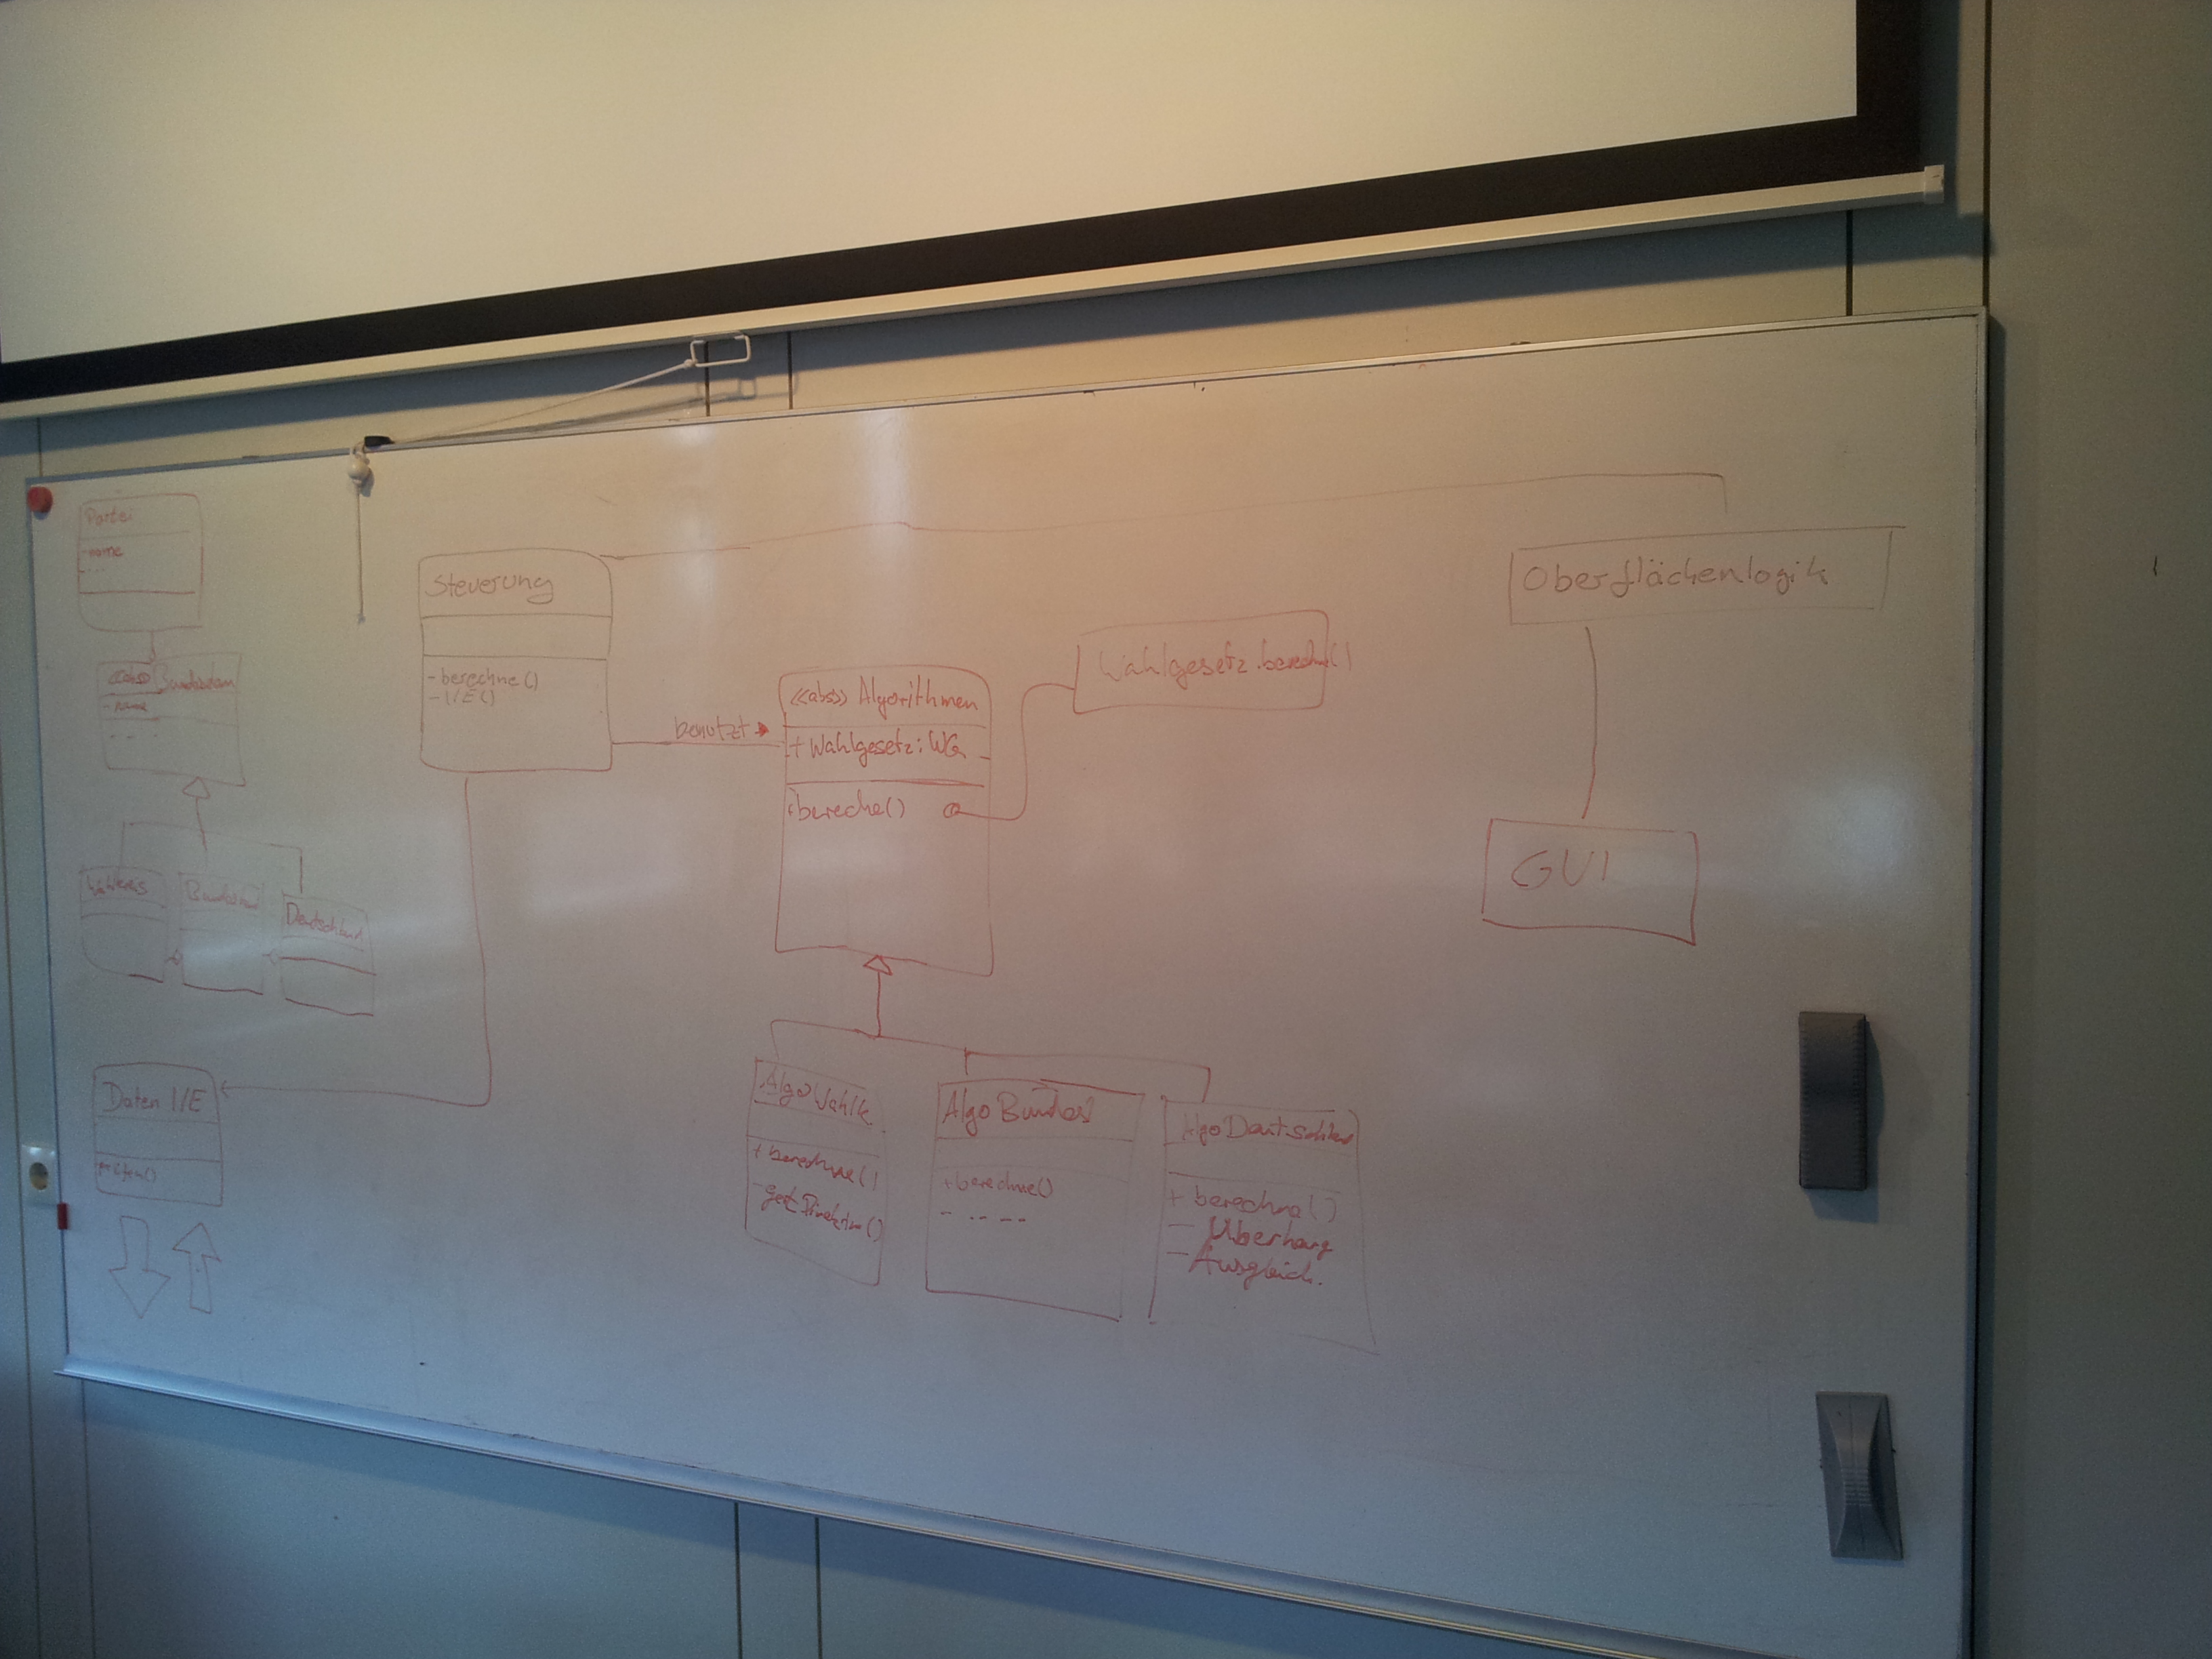 Partei
-name
- - -
<<abs>>
- name
- - -
Wahlkreis
Deutschland
Daten I/E
Steuerung
- berechne()
- I/E()
benutzt
<<abs>> Algorithmen
+ Wahlgesetz: WG
+bereche()
Wahlgesetz.berechne()
Algo Wahlk
+ berechne()
Algo Bundesl
+berechne()
- -- - -
Algo Deutschlan
+ berechne()
- Überhang
- Ausgleich.
Oberflächenlogik
GUI